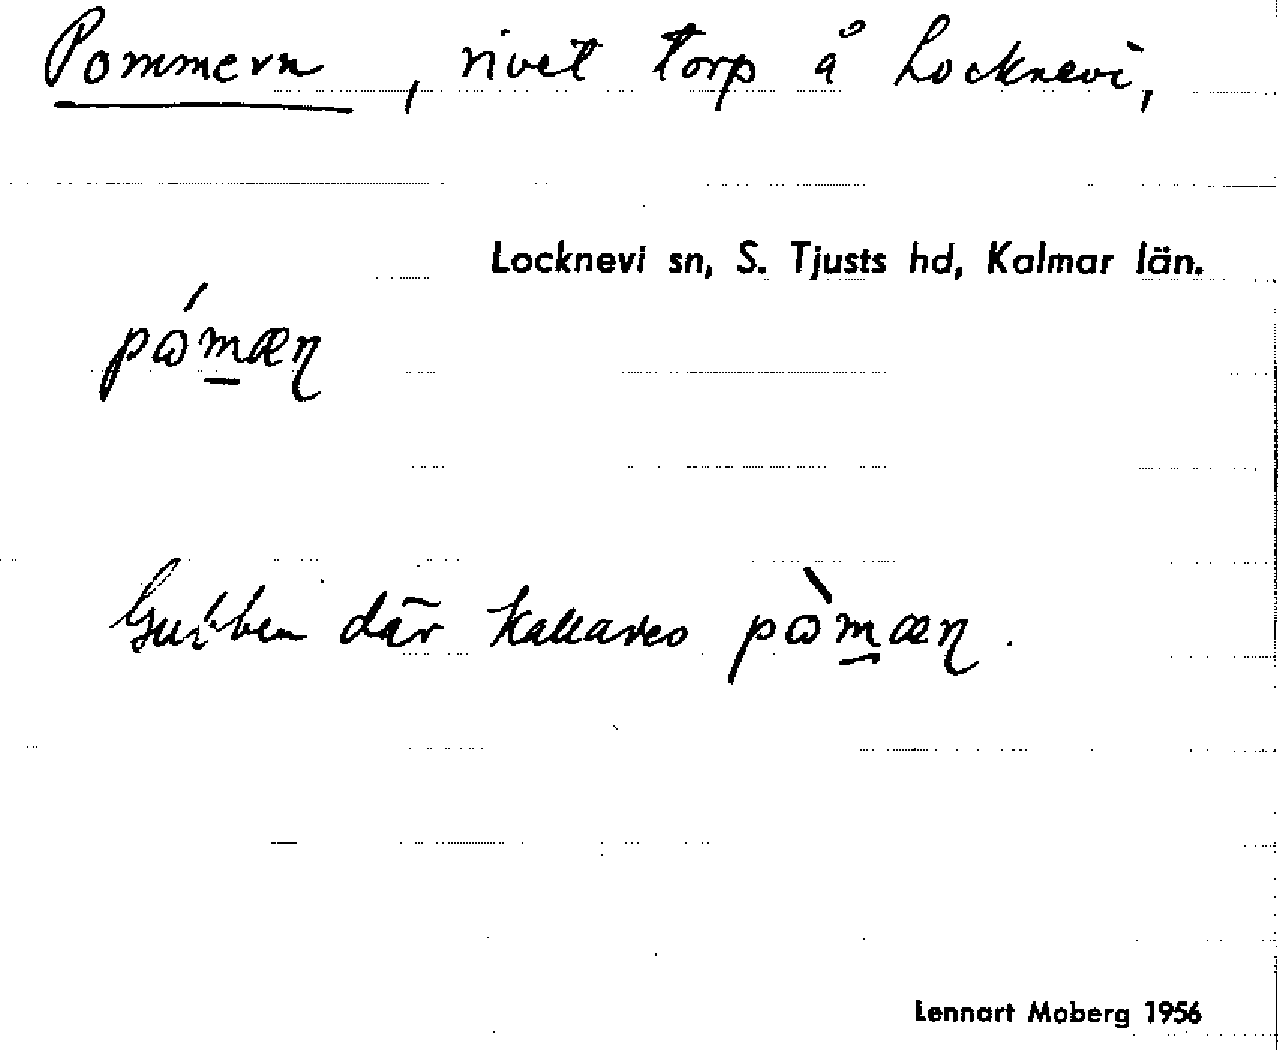 Pommern, rivet torp å Locknevi,
Locknevi sn, S. Tjusts hd, Kalmar län.
pɷ́m̲æɳ
Gubben där kallades pɷ̀m̲æɳ.
Lennart Moberg 1956